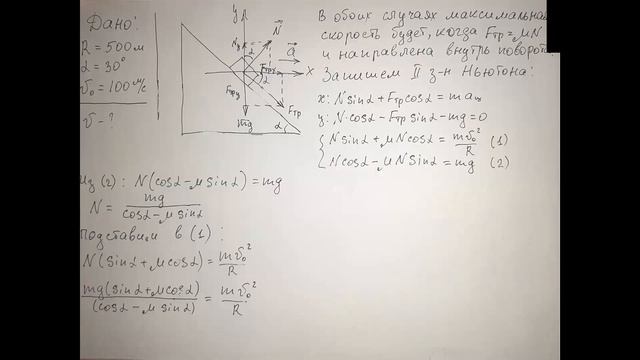 Дано:
R = 500 м
α = 30°
v₀ = 100 м/с
v - ?
y
N
Ny
a
x
Fтрx
Fтрy
Fтр
mg
α
В обоих случаях максимальная
скорость будет, когда Fтр = μN
и направлена внутрь поворот
Запишем II з-н Ньютона:
x: N sinα + Fтр cosα = ma
y: N·cosα - Fтр sinα - mg = 0
{ N sinα + μN cosα = mv₀²/R (1)
N cosα - μN sinα = mg (2)
Из (2): N(cosα - μ sinα) = mg
N = mg/(cosα - μ sinα)
подставим в (1):
N(sinα + μ cosα) = mv₀²/R
mg(sinα + μ cosα)/(cosα - μ sinα) = mv₀²/R